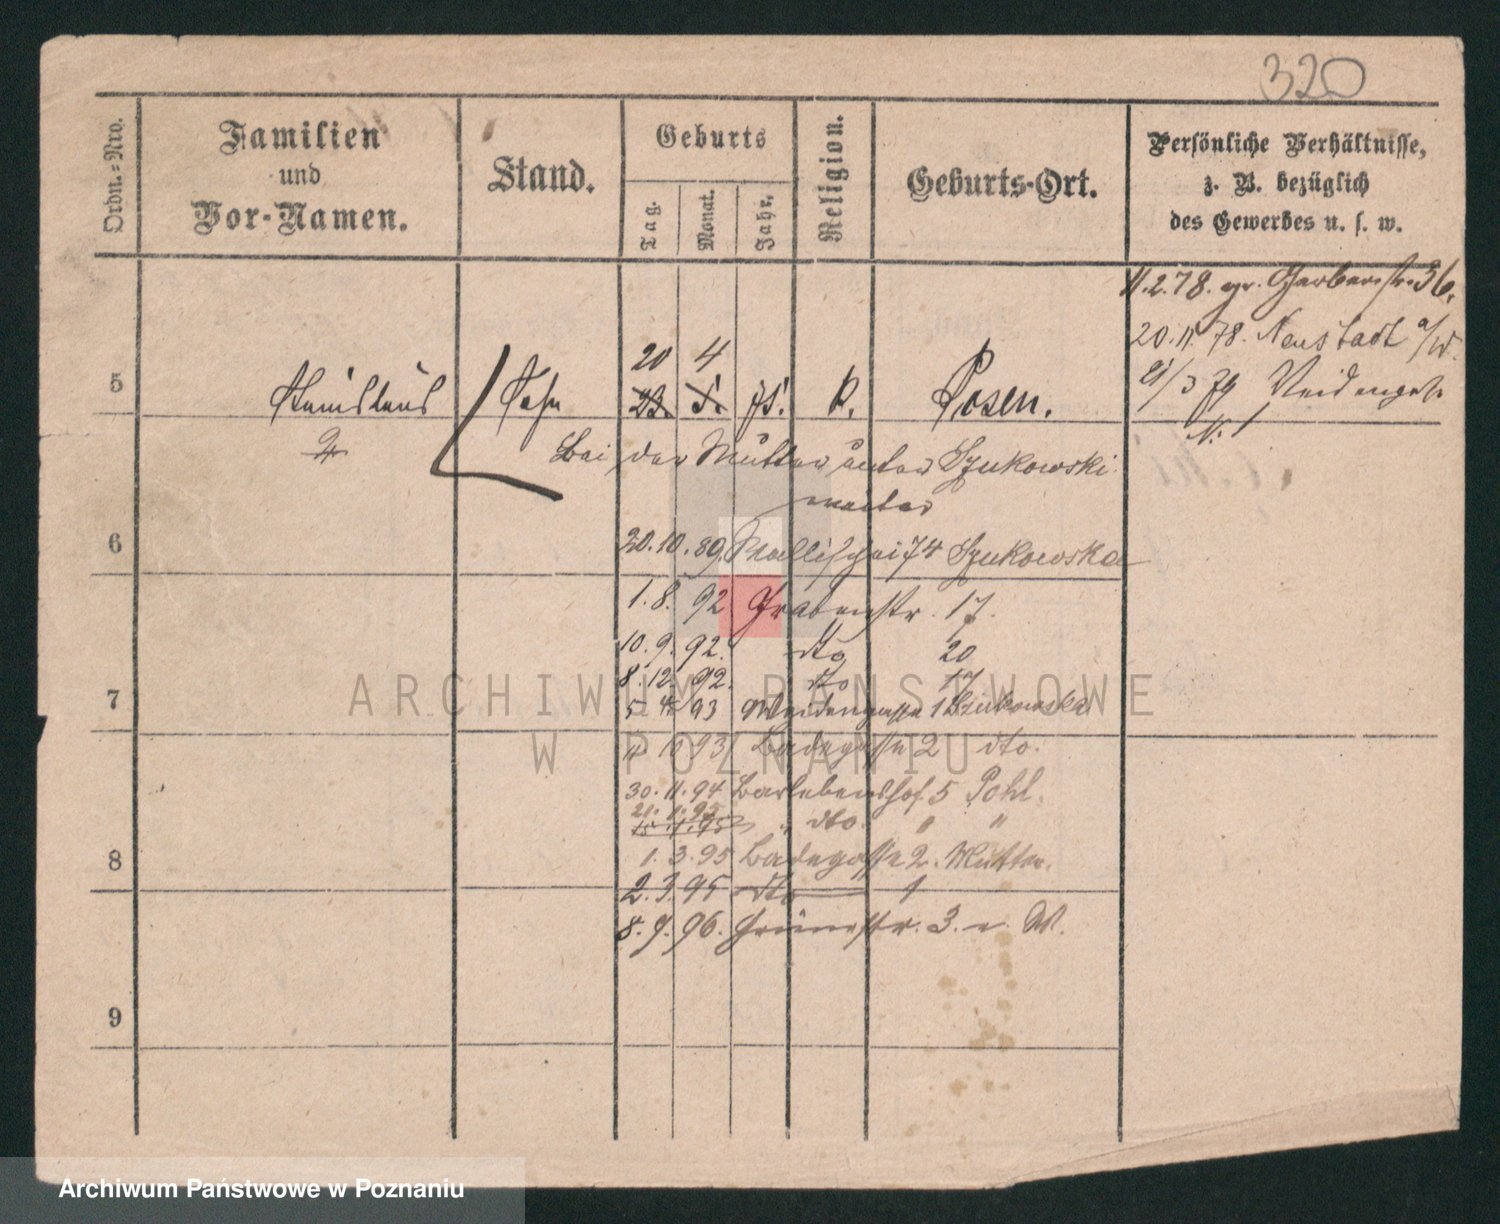 320
Ordn.-Nro.
Familien
und
Vor-Namen.
Stand.
Geburts
Tag.
Monat.
Jahr.
Religion.
Geburts-Ort.
Persönliche Verhältnisse,
z. B. bezüglich
des Gewerbes u. s. w.
11.2.78. gr. Gerberstr. 36.
20.11.78. Neustadt a/W.
20 4
5 Stanislaus Sohn 23. 5. 75. k. Posen.
21/3 79 Weidengasse
N. 1
Bei der Mutter unter Szukowski
weiter
6 20.10.89. Wallischei 74 Szukowska
1.8.92 Grabenstr. 17.
10.9.92. dto 20
8.12.92. dto 17
7 5 4 93 Weidengasse 1 Szukowska
10 93 Badegasse 2 dto.
30.11.94 Barlebenshof 5 Pohl.
21.1.95
15.1.95 " dto. " "
8 1.3.95 Badegasse 2. Mutter.
2.3.95 dto 1
8.9.96. Grünestr. 3. W.
9
ARCHIWUM PAŃSTWOWE
W POZNANIU
Archiwum Państwowe w Poznaniu